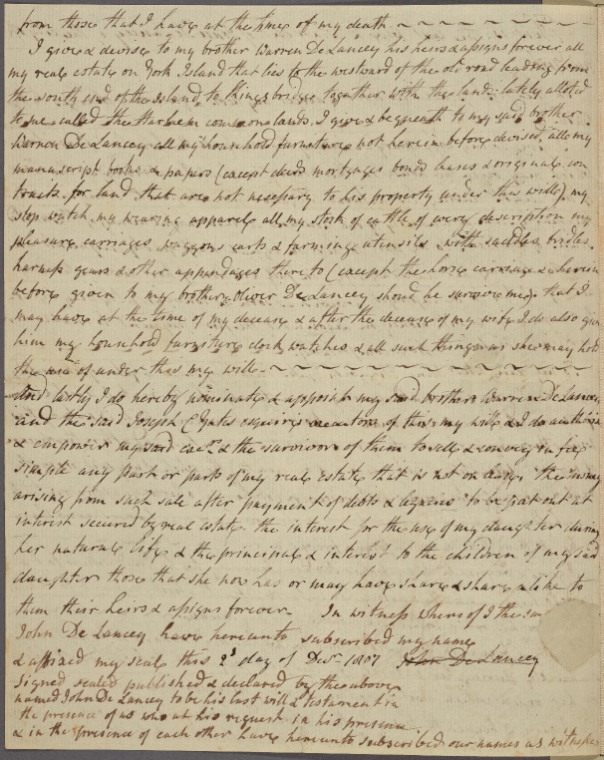 from those that I have at the time of my death
I give & devise to my brother Warren De Lancey his heirs & assigns forever all
my real estate on York Island that lies to the westward of the old road leading from
the south end of the Island to Kings bridge together with the land lately alloted
to me called the Harlem common lands. I give & bequeath to my said brother
Warren De Lancey all my houshold furniture not herein before devised, all my
manuscript books & papers (except deeds mortgages bonds leases & original con
tracts for land that are not necessary to his property under this will) my
stop watch my wearing apparel all my stock of cattle of every description my
pleasure carriages, waggons carts & farming utensils with saddles bridles
harness gears & other appendages thereto (except the horse carriage & herein
before given to my brother Oliver De Lancey should he survive me) that I
may have at the time of my decease & after the decease of my wife I do also give
him my houshold furniture clock watches & all such things as she may hold
the use of under this my will
And lastly I do hereby nominate & appoint my said brother Warren De Lancey
and the said Joseph C Yates esquire executors of this my will & I do authorise
& empower my said exrs & the survivor of them to sell & convey in fee
simple any part or parts of my real estate that is not on lease the money
arising from such sale after payment of debts & legacies to be put out at
interest secured by real estate the interest for the use of my daughter during
her natural life & the principal & interest to the children of my said
daughter those that she now has or may have share & share alike to
them their heirs & assigns forever In witness whereof I the
John De Lancey have hereunto subscribed my name
& affixed my seal this 2d day of Decr 1807 John De Lancey
Signed sealed published & declared by the above
named John De Lancey to be his last will & testament in
the presence of us who at his request in his presence
& in the presence of each other have hereunto subscribed our names as witnesses